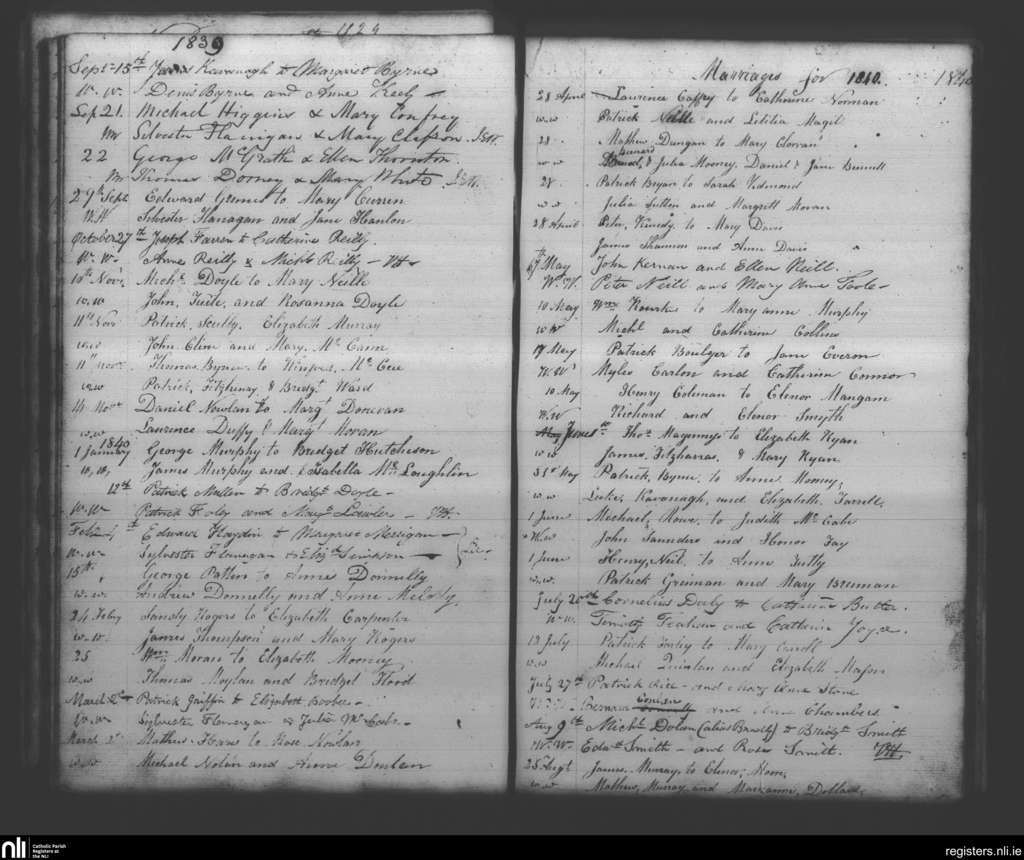 1839
Sept 15th James Kavanagh to Margaret Byrne
W. W. Denis Byrne and Anne Keely
Sep 21. Michael Higgins & Mary Confrey
W Silvester Flanigan & Mary
22 George McGrath & Ellen Thornton
W Thomas Dorney & Mary White
29th Sept Edward Grimes to Mary Curran
W.W Silvester Flanagan and Jane Hanlon
October 27th Joseph Farren to Catherine Reilly.
W. W. Anne Reilly & Reilly
10th Novr Michl Doyle to Mary Neille
w.w John, Tuite, and Rosanna Doyle
11th Novr Patrick, Scully, Elizabeth Murray
w.w John Cline and Mary, McCann
11th Novr Thomas Byrne to Mc Gee
w.w Patrick, Fitzhenry, & Bridgt Ward
14 Novr Daniel Nowlan to Margt Donovan
w.w Laurence Duffy & Margt Moran
1840
1 January George Murphy to Bridget Hutcheson
w.w, James Murphy and Isabella McLoughlin
12th Patrick Mullen to Bridgt Doyle
W. W. Patrick Foley and Margt Lawler
Edward Haydin to Margaret Merrigan
W. W. Sylvester Flanagan & Eliz
15th. George Patten to Anne Donnelly
w.w. Andrew Donnelly and Anne Melody.
24 Feby Sandy Rogers to Elizabeth Carpenter
w.w. James Thompson and Mary Rogers
25 Wm Moran to Elizabeth Mooney
w.w Thomas Moylan and Bridget Flood
March 2d Patrick Griffin to Elizabeth
W. W. Sylvester Flanagan & Julia McCabe
March Mathew to Rose Nowlan
w.w Michael Nolan and Anne Donlan
Marriages for 1840. 1840
28 April Laurence Caffry to Catherine Norman
w.w Patrick Neille and Letitia Magil
28 Mathew Dungan to Mary
w.w Bernard & Julia Mooney, Daniel & Jane
28 Patrick Bryan to Sarah
w.w Julia Sutton and Margrett Moran
28 April Peter, Kinedy, to Mary Davis
James Shannon and Anne Davis
17th May John Kernan and Ellen Neill.
W. W. Peter Neill and Mary Anne Toole
10 May Wm Rourke to Mary anne Murphy
w.w Michl and Catherine Collins
17 May Patrick Boulger to Jane
W. W. Myles Carlon and Catherine Connor
10 May Henry Coleman to Elenor Mangam
W. W Richard and Elenor Smyth
June Thos Magennys to Elizabeth Ryan
w.w James, Fitzharras, & Mary Ryan
31st May Patrick, Byrne, to Anne
w.w Luke, Kavanagh, and Elizabeth, Farrell
1 June Michael, Rowe, to Judith McCabe
w.w John Saunders and Honor Fay
1 June Henry, Neil, to Anne Tutty
w.w. Patrick Greinan and Mary Brennan
July 20th Cornelius Daly to Catharine Butler.
W. W. Timothy and Catherine Joyce.
13 July Patrick Farly to Mary
w.w Michael Quinlan and Elizabeth Mason
July 27th Patrick Rice and Mary Anne Stone
Bernard and Anne Chambers
Aug 9th Michl Dolan (alias) to Bridgt Smith
W. W. Edwd Smith and Rose Smith.
25 Augt James, Murray, to Elenor,
w.w Mathew, Murray, and Mary anne, Dollard,
nli
Catholic Parish
Registers at
the NLI
registers.nli.ie